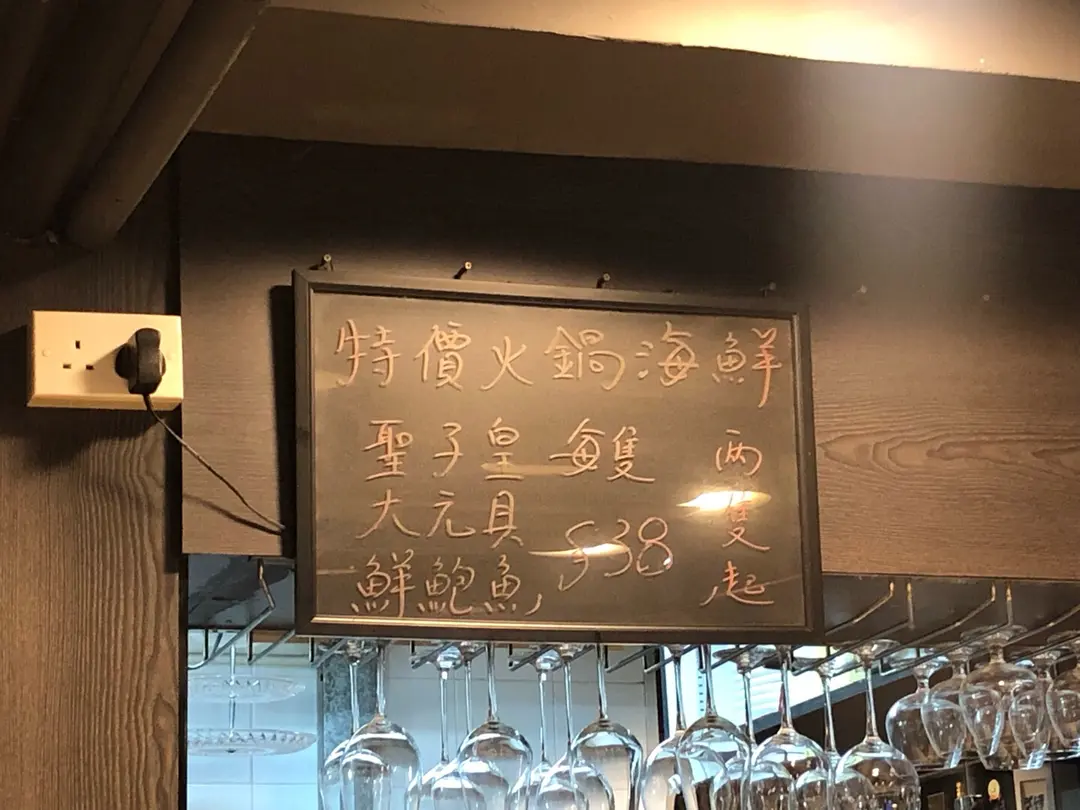 特價火鍋海鮮
聖子皇 每隻
大元貝
鮮鮑魚 $38
两隻起